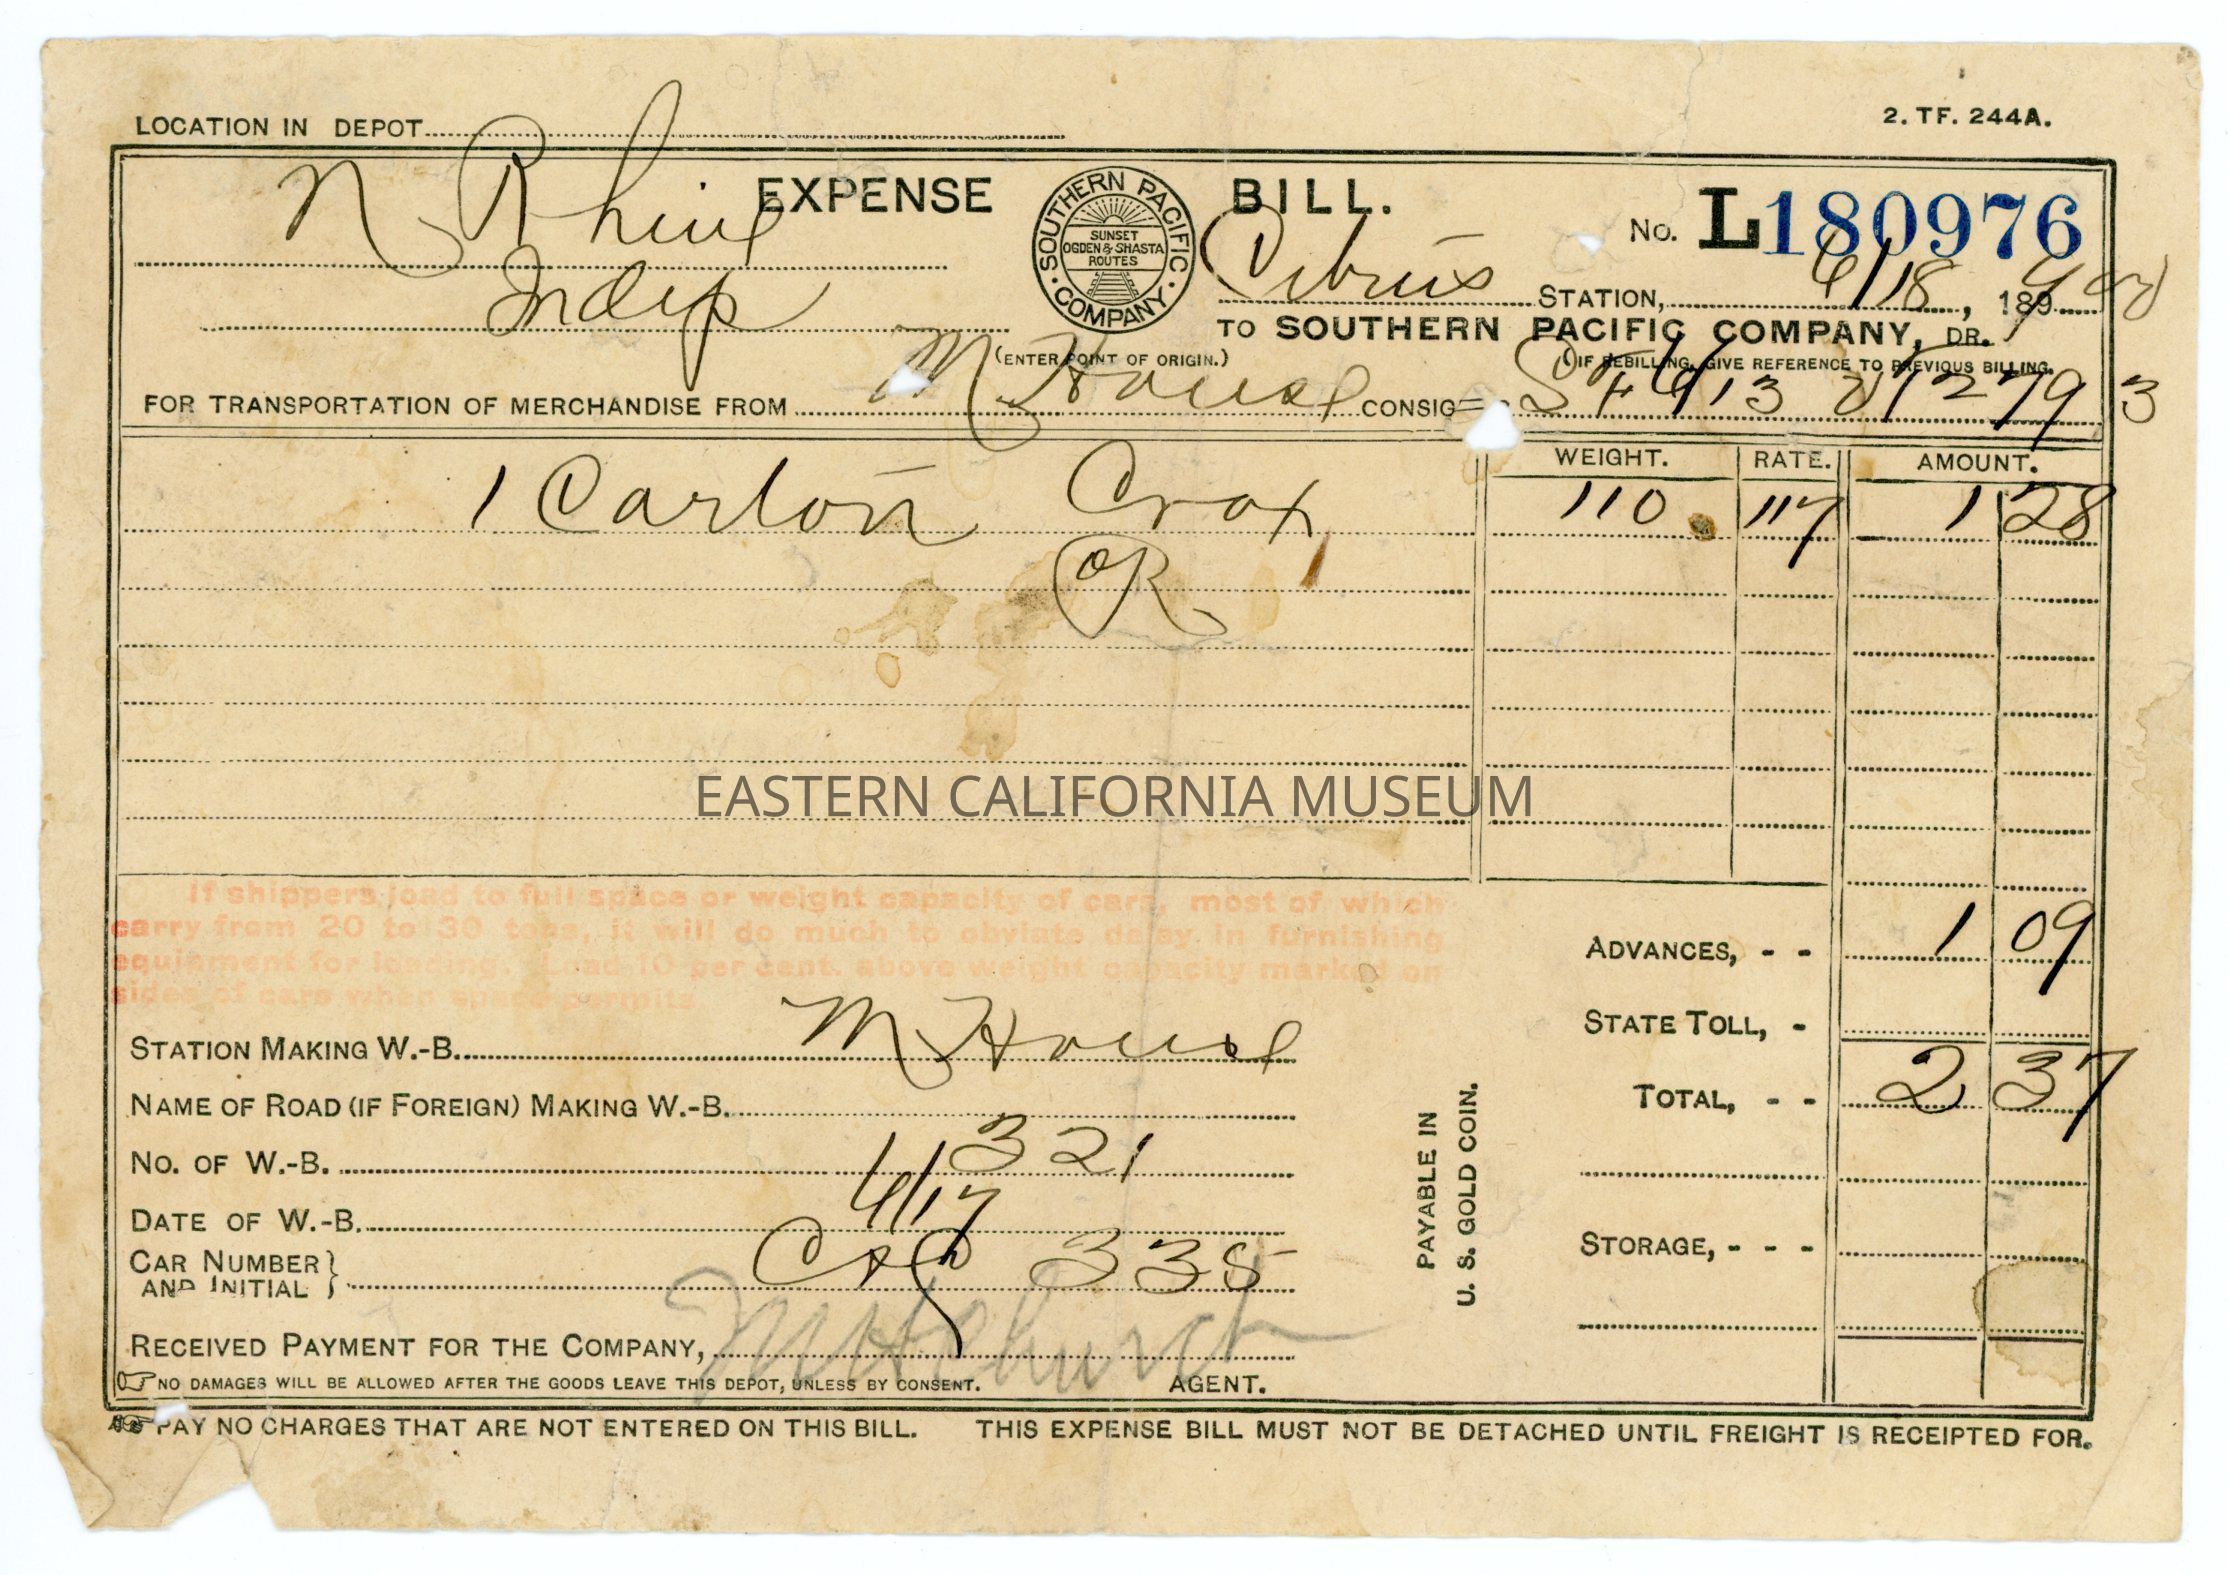 LOCATION IN DEPOT
2. TF. 244A.
N Rhine
EXPENSE BILL.
SOUTHERN PACIFIC COMPANY
SUNSET
OGDEN & SHASTA
ROUTES
No. L180976
Indep
Citrus STATION, 4/18, 189
TO SOUTHERN PACIFIC COMPANY, DR.
(ENTER POINT OF ORIGIN.)
(IF REBILLING, GIVE REFERENCE TO PREVIOUS BILLING.
FOR TRANSPORTATION OF MERCHANDISE FROM M House CONSIG 4/13 12793
WEIGHT. RATE. AMOUNT.
1 Carton 110 117 1 28
OR
EASTERN CALIFORNIA MUSEUM
If shippers load to full space or weight capacity of cars, most of which
carry from 20 to 30 tons, it will do much to obviate delay in furnishing
equipment for loading. Load 10 per cent. above weight capacity marked on
sides of cars when space permits.
ADVANCES, - - 1 09
STATE TOLL, -
STATION MAKING W.-B. M House
TOTAL, - - 2 37
NAME OF ROAD (IF FOREIGN) MAKING W.-B.
PAYABLE IN
U. S. GOLD COIN.
NO. OF W.-B. 321
DATE OF W.-B. 4/17
STORAGE, - - -
CAR NUMBER
AND INITIAL } C&C 335
RECEIVED PAYMENT FOR THE COMPANY,
NO DAMAGES WILL BE ALLOWED AFTER THE GOODS LEAVE THIS DEPOT, UNLESS BY CONSENT. AGENT.
PAY NO CHARGES THAT ARE NOT ENTERED ON THIS BILL. THIS EXPENSE BILL MUST NOT BE DETACHED UNTIL FREIGHT IS RECEIPTED FOR.